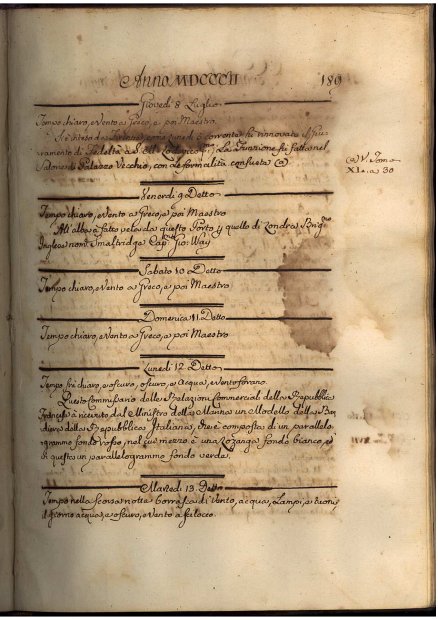 Anno MDCCCII 189
Giovedì 8 Luglio
Tempo chiaro, e Vento a Greco, e poi Maestro
Si è inteso da Firenze, come Lunedì 5 corrente fù rinnovato il Giu=
ramento di Fedeltà al Lodovico La Funzione fù fatta nel
Salone di Palazzo Vecchio, con le formalità consuete (a)
(a) V. Tomo
XI. a 30
Venerdì 9 Detto
Tempo chiaro, e Vento a Greco, e poi Maestro
All'alba à fatto vela da questo Porto p quello di Londra Brig.no
Inglese nom. Smaltridge Cap. Gio: Way
Sabato 10 Detto
Tempo chiaro, e Vento a Greco, e poi Maestro
Domenica 11 Detto
Tempo chiaro, e Vento a Greco, e poi Maestro
Lunedì 12 Detto
Tempo frà chiaro, e oscuro, oscuro, e acqua, e Vento forano
Questo Commissario delle Relazioni Commerciali della Repubblica
Francese à ricevuto dal Ministro della Marina un Modello della Ban
diera della Repubblica Italiana, che è composta di un parallelo=
grammo fondo rosso, nel cui mezzo è una Lozanga fondo bianco, e
in questa un parallelogrammo fondo verde.
Martedì 13 Detto
Tempo nella scorsa notte borrasca di Vento, acqua, Lampi, e tuoni
il giorno acqua, e oscuro, e Vento a scilocco.